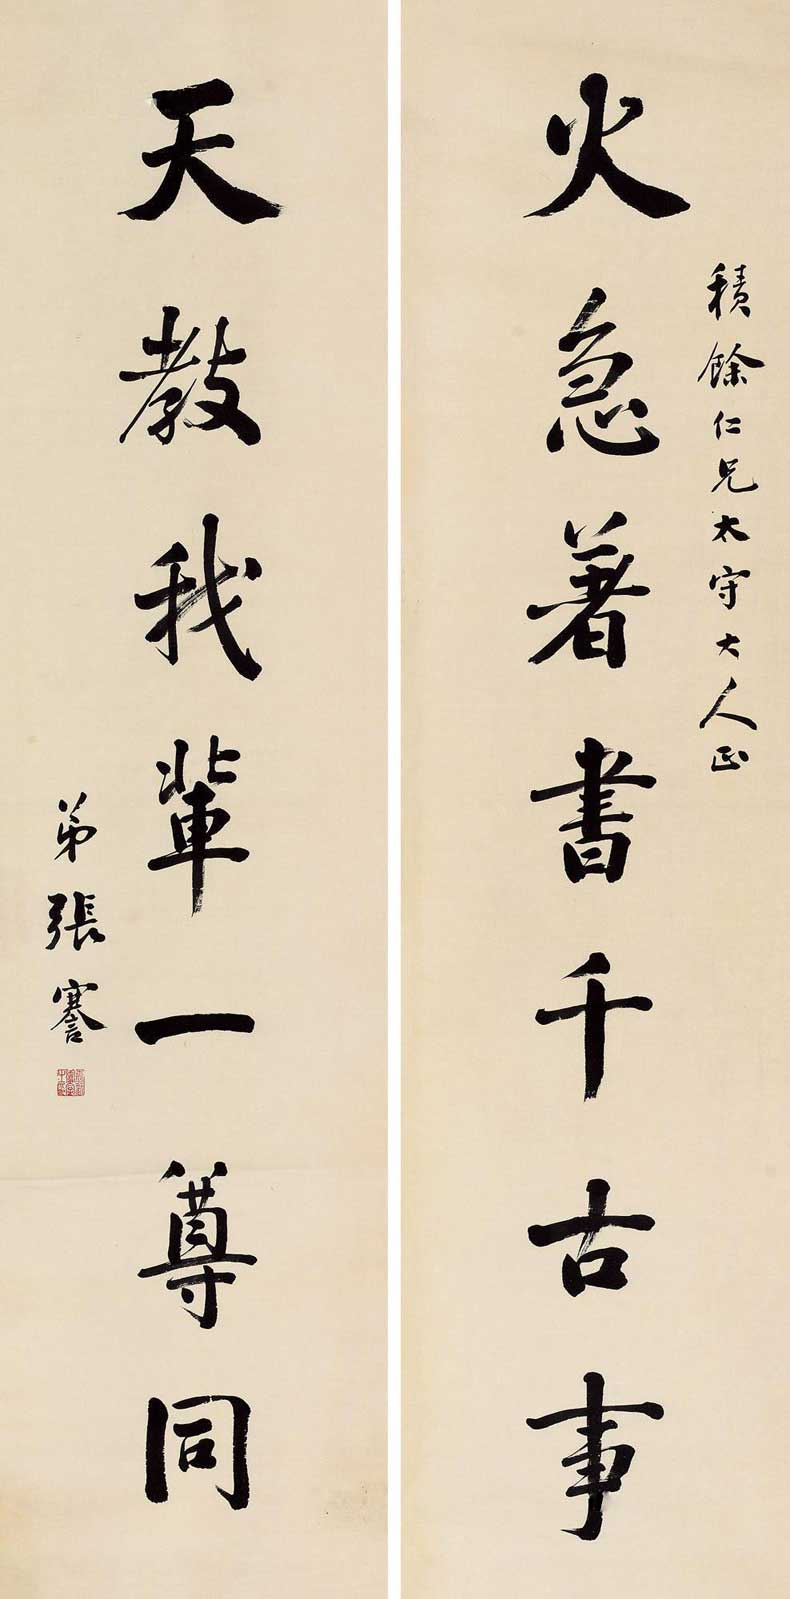 積餘仁兄太守大人正
火急著書千古事
天教我輩一尊同
弟張謇